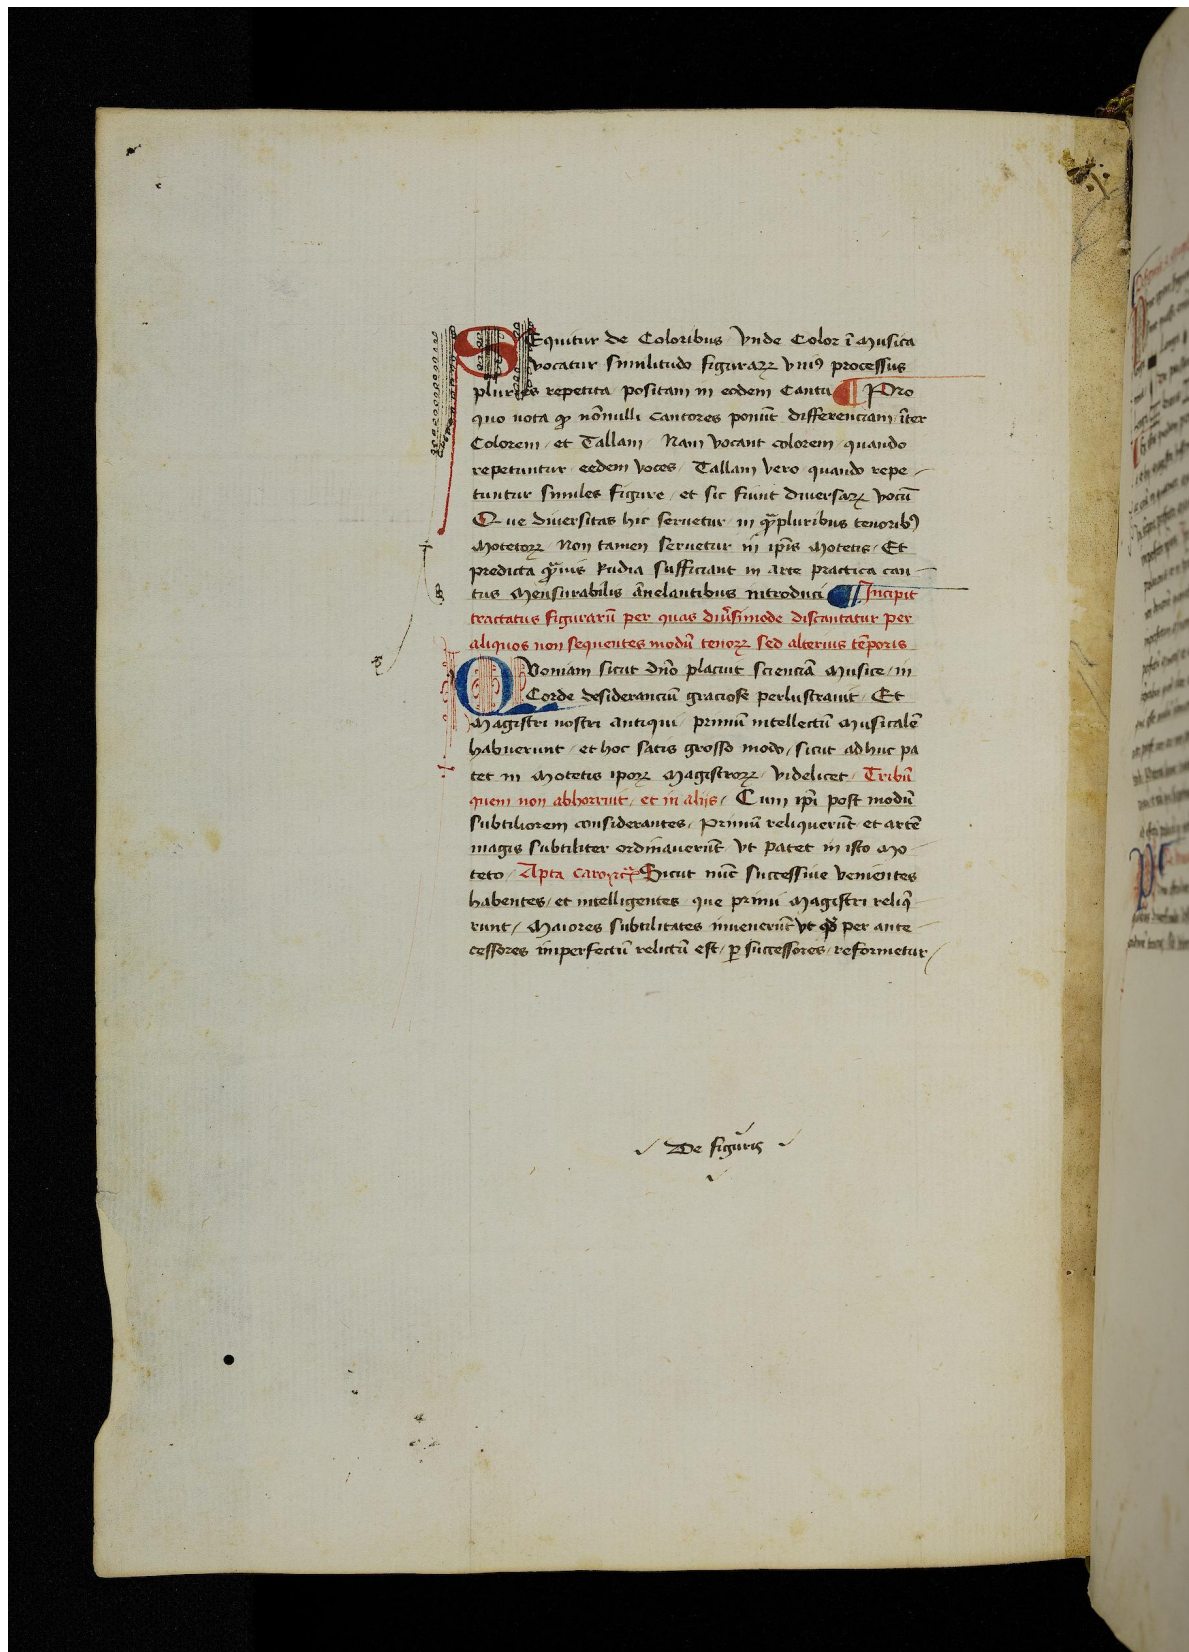 SEquitur de Coloribus Vnde Color ī Musica
vocatur similitudo figuraꝝ vniꝰ processus
pluries repetita positam in eodem Cantu ¶ Pro
quo nota ꝙ nōnulli Cantores ponūt differenciam īter
Colorem / et Tallam / Nam vocant colorem / quando
repetuntur / eedem voces / Tallam vero / quando repe
tuntur similes figure / et sic fiunt diuersaꝝ vocū
Que diuersitas hic seruetur / in qͣpluribus tenoribꝰ
Motetoꝝ Non tamen seruetur in ip̄is Motetis / Et
predicta qͣuis Rudia sufficiant in arte practica can
tus Mensurabilis ānelantibus introduci ¶ Incipit
tractatus figurarū per quas diu̾simode discantatur per
aliquos non sequentes modū tenoꝝ sed alterius tēporis
QVoniam sicut dn̄o placuit scienciā Musice / in
Corde desideranciū graciose perlustrauit / Et
Magistri nostri antiqui / primū intellectū Musicalē
habuerunt / et hoc satis grosso modo / sicut adhuc pa
tet in Motetis ip̄oꝝ Magistroꝝ / videlicet / Tribū
quem non abhorruit / et in alijs / Cum ip̄i post modū
subtiliorem considerantes / Primū reliquerūt et artē
magis subtiliter ordinauerūt / vt patet in isto Mo
teto / Apta Sicut nūc successiue venientes
habentes / et intelligentes que primi Magistri reliq̄
runt / Maiores subtilitates inuenerūt vt qd̄ per ante
cessores imperfectū relictū est / ꝑ successores / reformetur /
De figuris